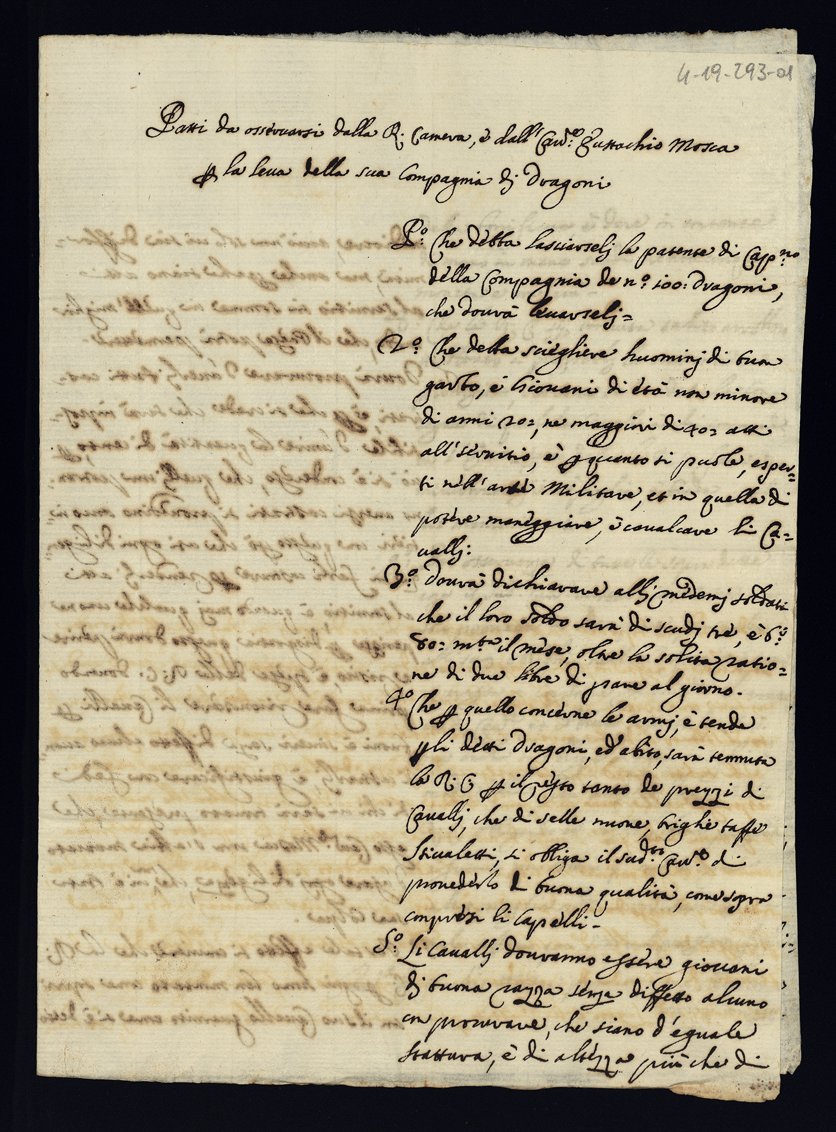 4-19-293-01
Patti da osseruarsi dalla R. Camera, è dall' Cau.ro Eustachio Mosca
ꝑ la leua della sua Compagnia dj dragoni
P.o Che debba lasciarselj la patente di Cap.no
della Compagnia de n.o 100: dragoni,
che dourà leuarselj=
2.o Che debba scièglière huominj di buon
garbo, è Giouani di età non minore
di anni 20=, ne maggiori di 40= atti
all' sèruitio, è ꝑ quanto si puole, esper=
ti nèll' arte Militare, et in quella di
potère manèggiare, è caualcare li Ca=
uallj:
3.o dourà dichiarare allj mèdemj soldati
che il loro soldo sarà di scudj trè, è b.o
80= m.ta il mèse, oltre la solita ratio=
ne di due libre di pane al giorno.
4.o Che ꝑ quello concèrne le armj, è tende
ꝑ li dètti dragoni, ed' abito, sarà tennuta
la R. C ꝑ il rèsto tanto de prezzi di
Cauallj, che di selle nuoue, brighe taffe
Stiualetti, si obliga il sud.to Cau.ro di
prouederlo di buona qualità, come sopra
comprèsi li Capelli-
5.o Li Cauallj douranno essère giouani
dj buona razza sènza diffetto alcuno
con procurare, che siano d'eguale
stattura, è di altèzza più che di